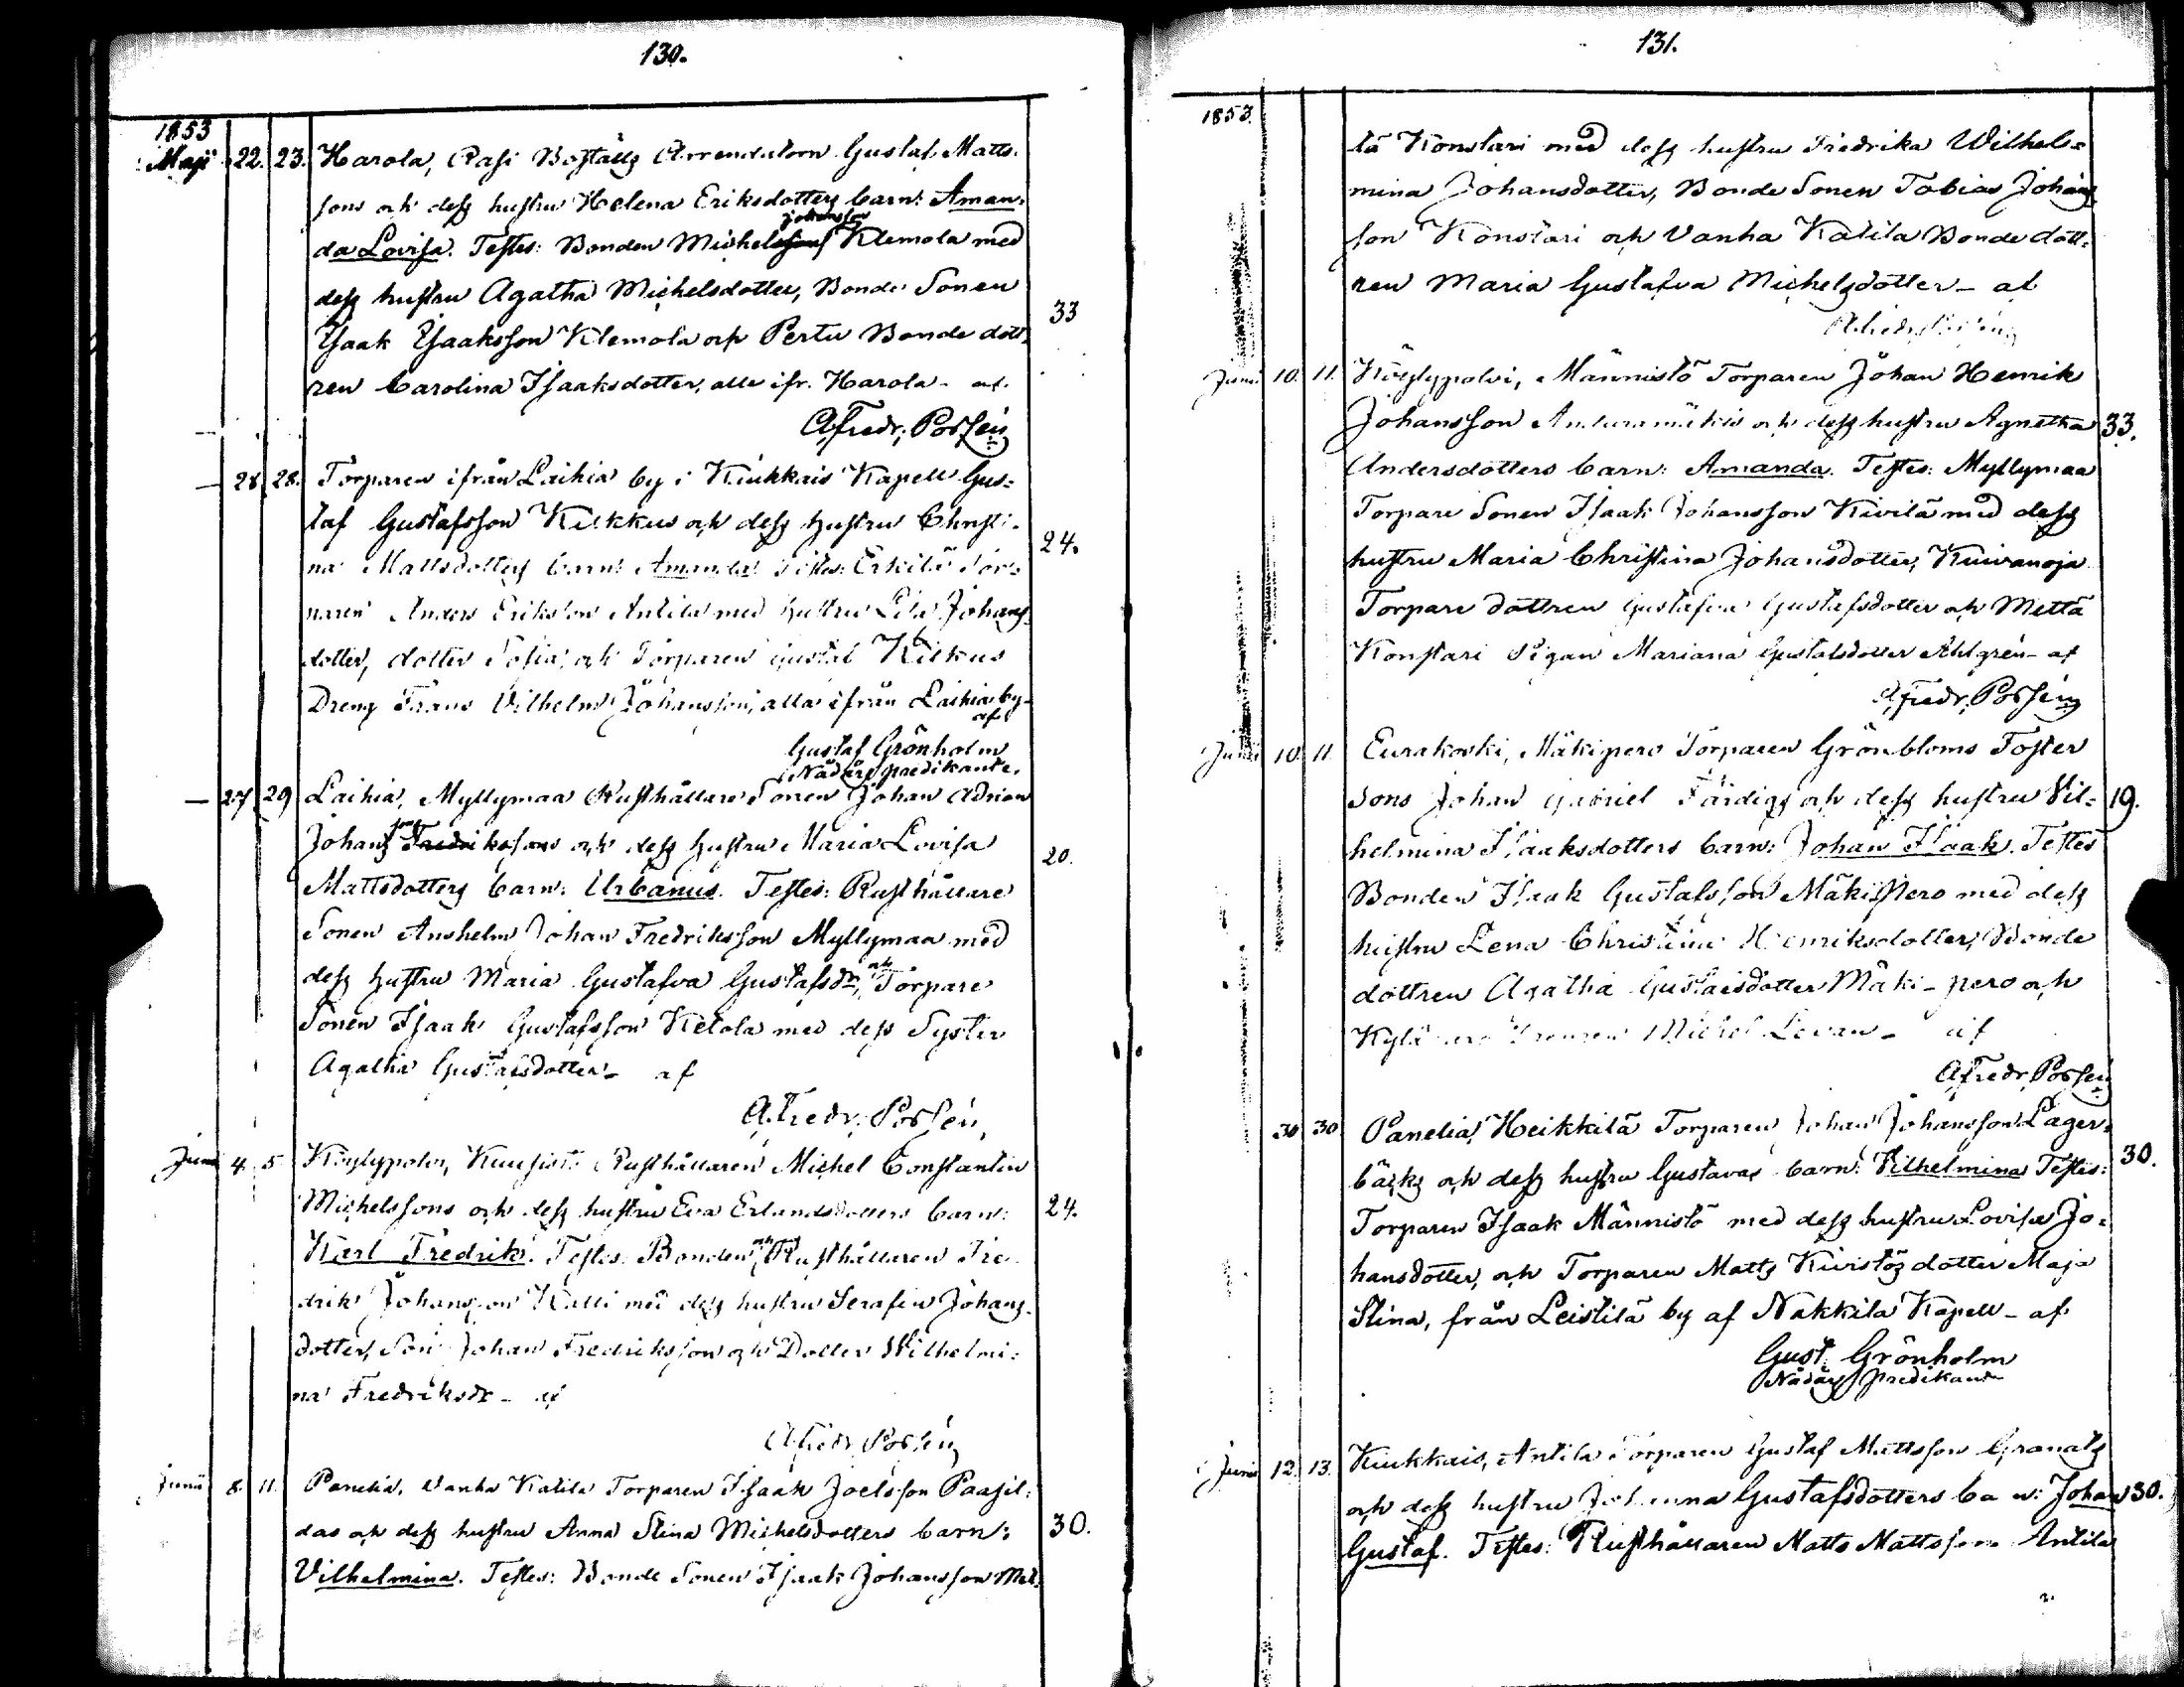 130.
1853
Maji 22. 23. Harola, Pasi Boställs Arrendatorn Gustaf Matts-
sons och dess hustru Helena Eriksdotters barn: Aman-
johansson
da Lovisa. Testes: Bonden Michelssons Klemola med
dess hustru Agatha Michelsdotter, Bonde Sonen
33
Isaak Isaaksson Klemola och Pertu Bonde dött-
ren Carolina Isaaksdotter, alle ifr. Harola - af
A. Fredr. Possén
— 28. 28. Torparen ifrån Laihia by i Kiukkais Kapell Gus-
taf Gustafsson Kilkkus och dess hustru Christi-
24.
na Mattsdotters barn: Amanda. Testes: Erkilä Tor-
paren Anders Eriksson Antila med hustru Lisa Johans-
dotter, dotter Sofia och Torparen Gustaf Kilkus
Dreng Frans Vilhelm Johansson, alla ifrån Laihia by-
af
Gustaf Grönholm
Nådårs predikante.
— 27 29 Laihia, Myllymaa Rusthållare Sonen Johan Adrian
son
Johans Fredrikssons och dess hustru Maria Lovisa
20.
Mattsdotters barn: Urbanus. Testes: Rusthållare
Sonen Anshelm Johan Fredriksson Myllymaa med
dess hustru Maria Gustafva Gustafsdr, och Torpare
Sonen Isaak Gustafsson Ketola med dess Syster
Agatha Gustafsdotter - af
A. Fredr. Possén
Juni 4. 5. Köylypolvi, Kuusisto Rusthållaren Michel Constantin
Michelssons och dess hustru Eva Erlandsdotters barn:
24.
Karl Fredrik. Testes: Bonden och Rusthållaren Fre-
drik Johansson Kalli med dess hustru Serafin Johans-
dotter, Son Johan Fredriksson och Dotter Wilhelmi-
na Fredriksdr - af
A. Fredr. Possén
Junii 8. 11. Panelia, Vanha Katila Torparen Isaak Joelsson Paasil-
das och dess hustru Anna Stina Michelsdotters barn:
30.
Vilhelmina. Testes: Bonde Sonen Isaak Johansson Met-
131.
1853.
tä Konstari med dess hustru Fredrika Wilhel-
mina Johansdotter, Bonde Sonen Tobias Johans
son Konstari och Vanha Katila Bonde dött-
ren Maria Gustafva Michelsdotter - af
A. Fredr. Possén
Juni 10. 11. Köylypolvi, Männistö Torparen Johan Henrik
Johansson och dess hustru Agnetha
33.
Andersdotters barn: Amanda. Testes: Myllymaa
Torpare Sonen Isaak Johansson Kivilä med dess
hustru Maria Christina Johansdotter, Kuivanoja
Torpare dottren Gustafva Gustafsdotter och Mettä
Konstari Pigan Mariana Gustafsdotter Ahlgrén - af
A. Fredr. Possén
Juni 10. 11. Eurakoski, Mäkipero Torparen Grönbloms Foster
Sons Johan Gabriel Färdigs och dess hustru Vil-
19.
helmina Isaaksdotters barn: Johan Isaak. Testes
Bonden Isaak Gustafsson Mäkipero med dess
hustru Lena Christina Henriksdotter, Bonde
dottren Agatha Gustafsdotter Mäki-pero och
Michel Levan - af
A. Fredr. Possén
30 30 Panelia, Heikkilä Torparen Johan Johansson Lager-
bäcks och dess hustru Gustavas barn: Vilhelmina Testes:
30.
Torparen Isaak Männistö med dess hustru Lovisa Jo-
hansdotter, och Torparen Matts Kivistös dotter Maja
Stina, från Leistilä by af Nakkila Kapell - af
Gust. Grönholm
Nådårs predikant
Junii 12. 13. Kiukkais, Antila Torparen Gustaf Mattsson Granats
och dess hustru Johanna Gustafsdotters ba n: Johan
30.
Gustaf. Testes: Rusthållaren Matts Mattsson Antila